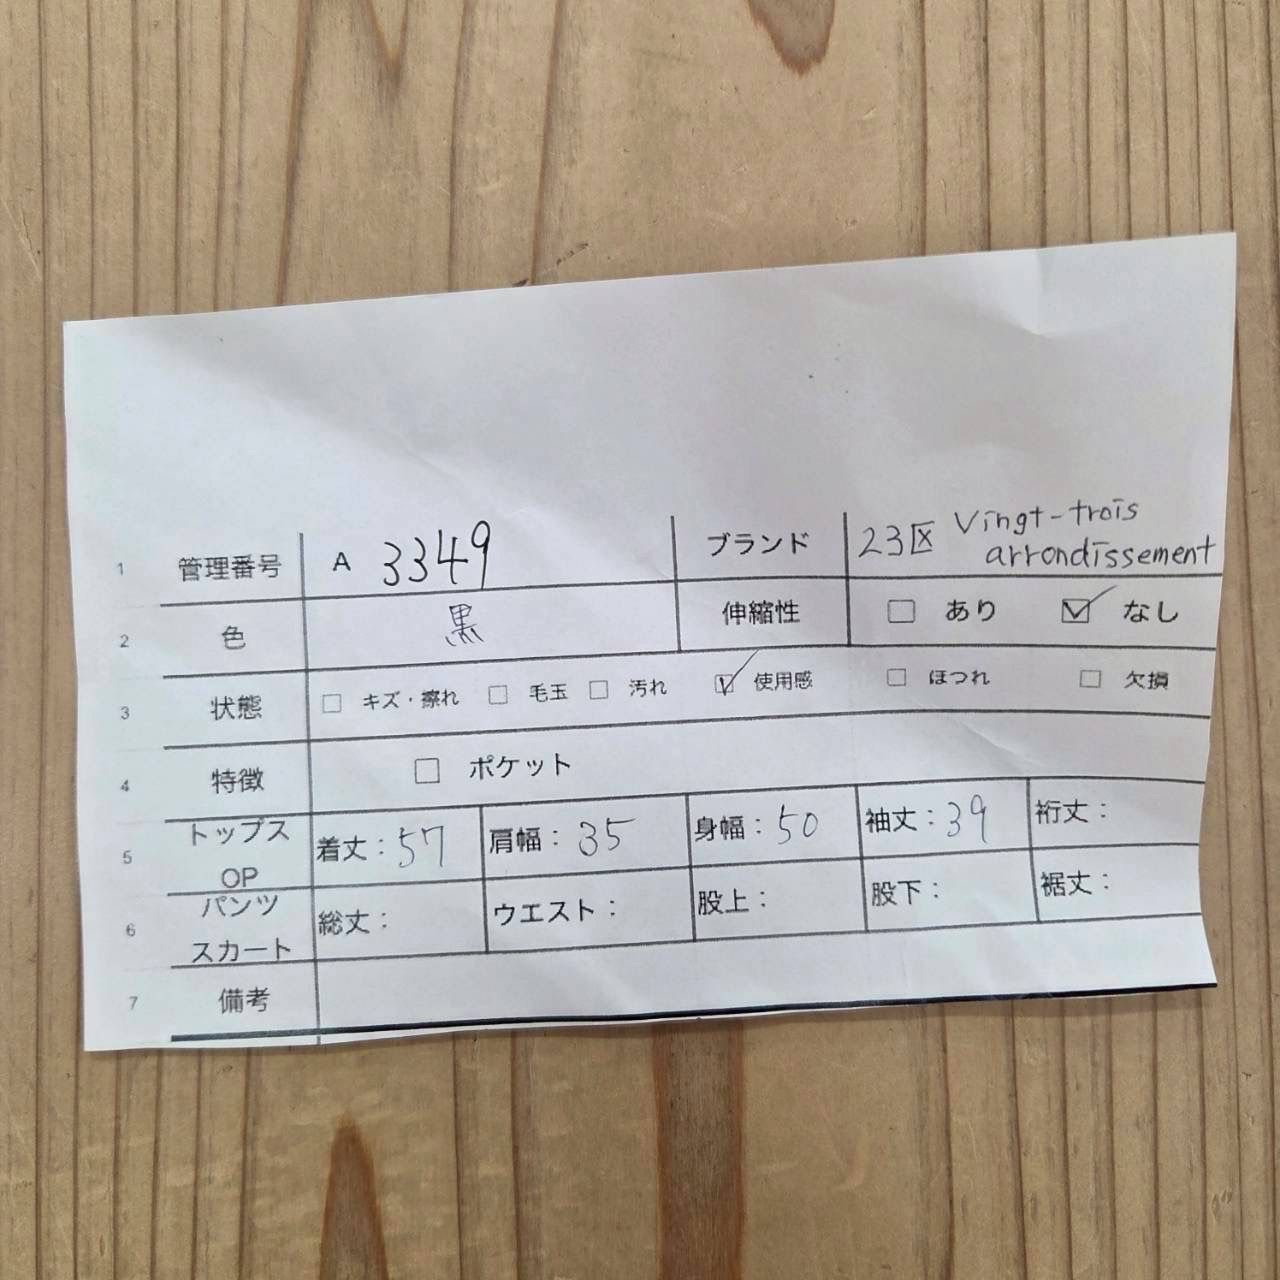 1 管理番号 A 3349 ブランド 23区 Vingt-trois arrondissement
2 色 黒 伸縮性 □ あり ☑ なし
3 状態 □ キズ・擦れ □ 毛玉 □ 汚れ ☑ 使用感 □ ほつれ □ 欠損
4 特徴 □ ポケット
5 トップス OP 着丈：57 肩幅：35 身幅：50 袖丈：39 裄丈：
6 パンツ スカート 総丈： ウエスト： 股上： 股下： 裾丈：
7 備考